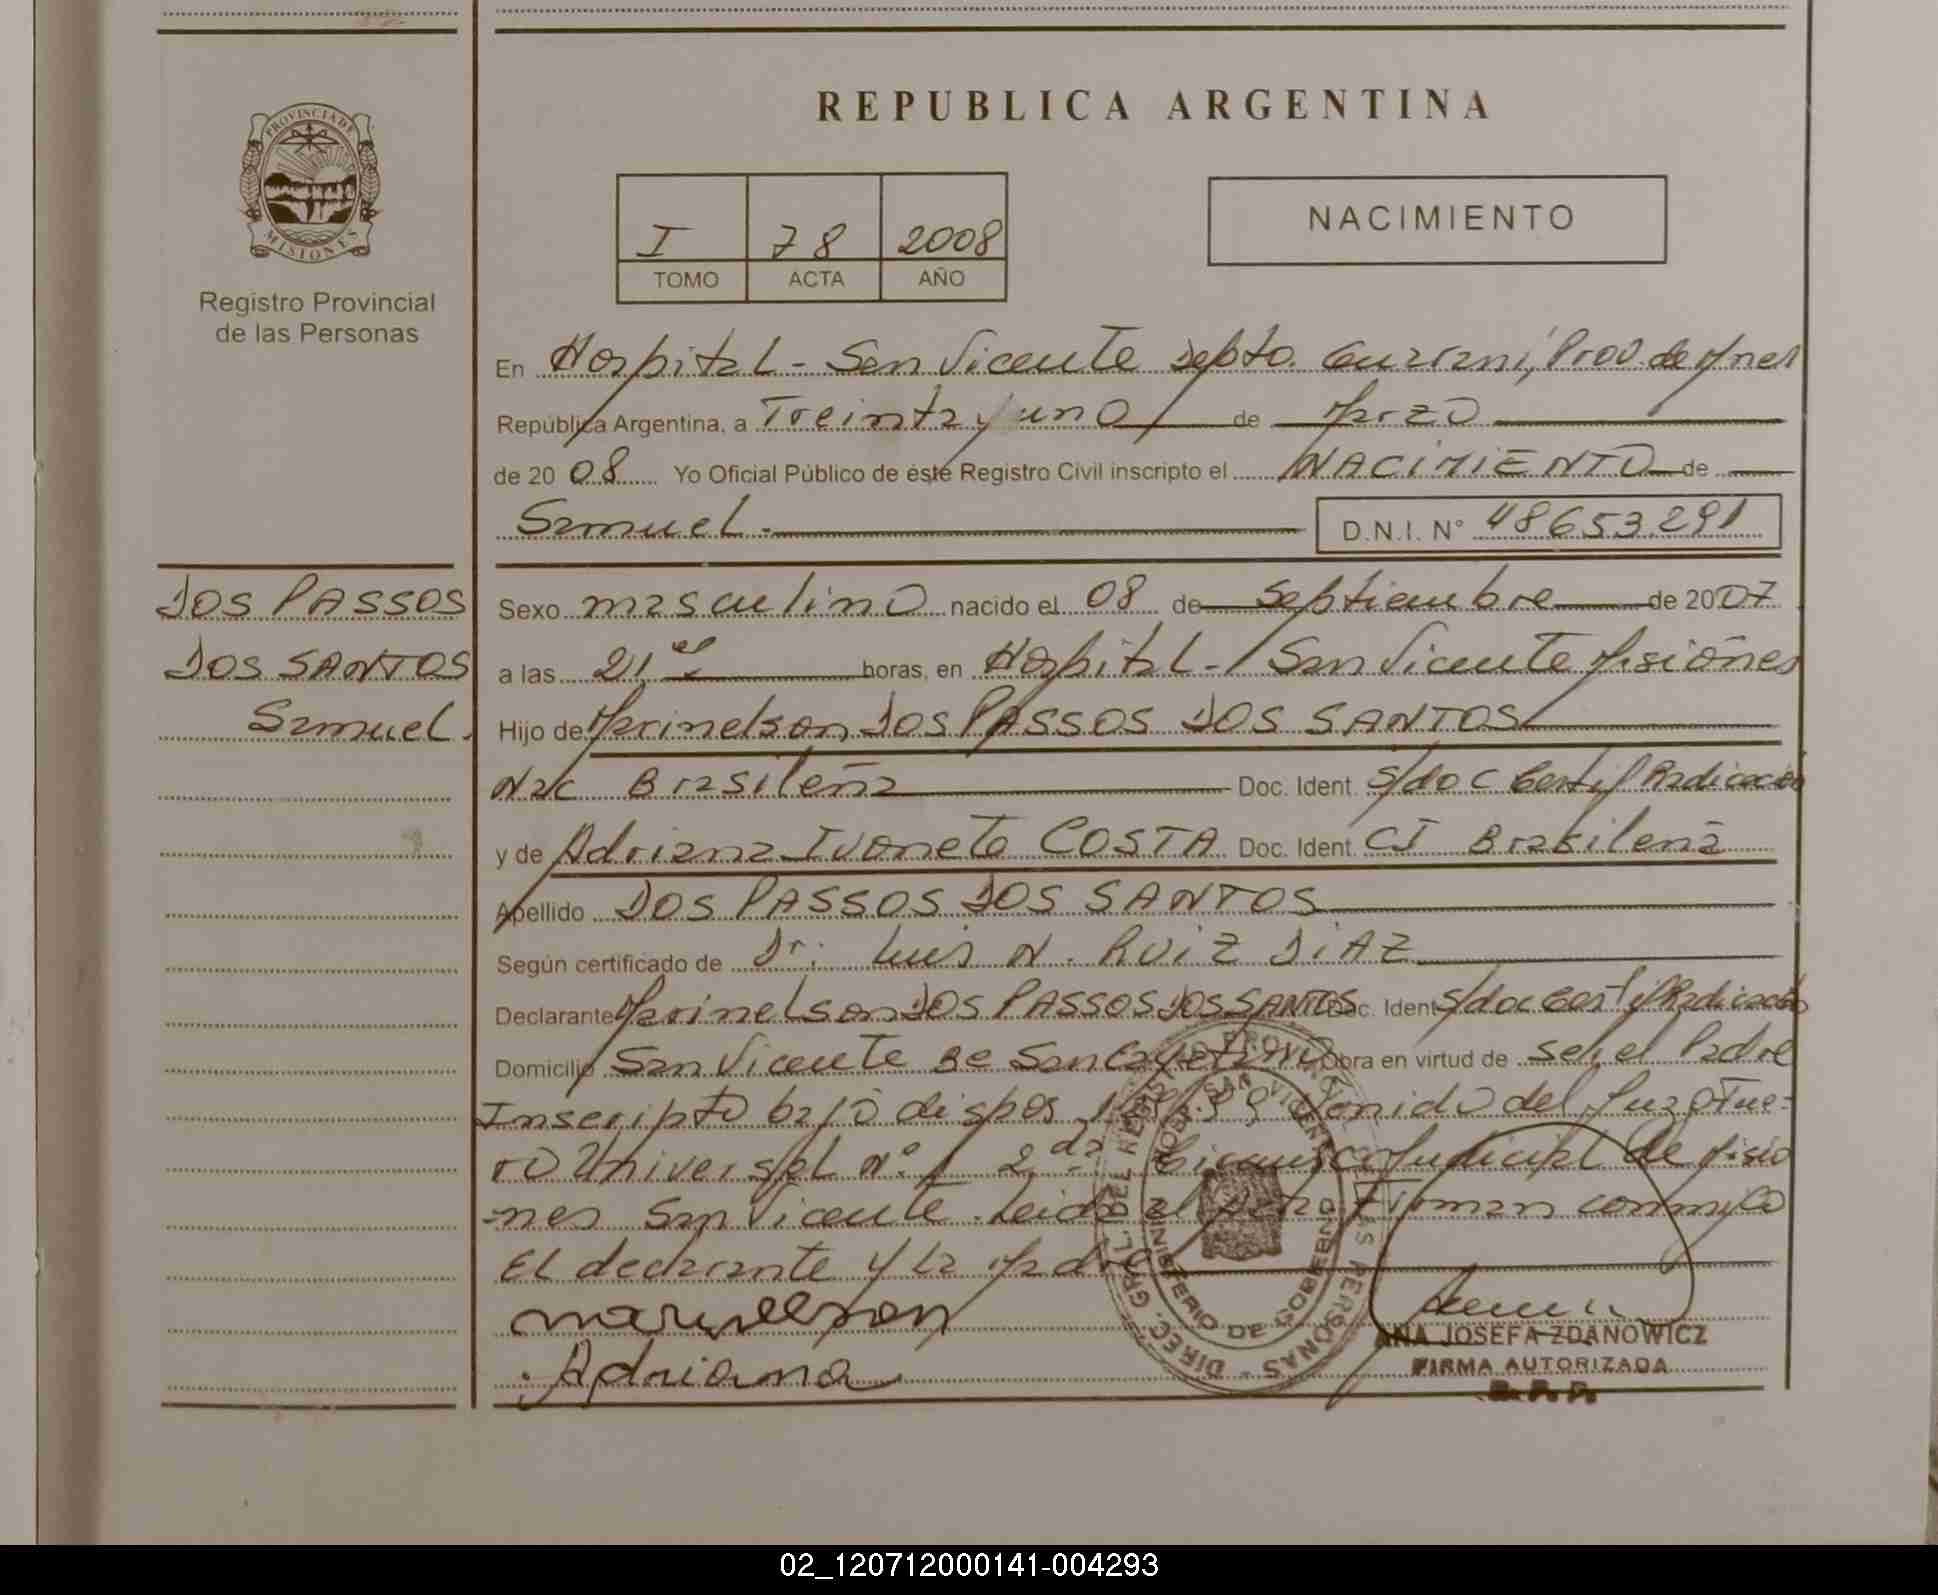 REPUBLICA ARGENTINA
PROVINCIA DE
MISIONES
Registro Provincial
de las Personas
I 78 2008
TOMO ACTA AÑO
NACIMIENTO
En Hospital - San Vicente Depto. Guarani, Prov. de Mnes
República Argentina, a Treinta y uno de Marzo
de 20 08 Yo Oficial Público de éste Registro Civil inscripto el NACIMIENTO de
Samuel.- D.N.I. N° 48653.291
DOS PASSOS
DOS SANTOS
Samuel.
Sexo masculino nacido el 08 de Septiembre de 2007
a las 21 horas, en Hospital - San Vicente Misiones
Hijo de Marinelson DOS PASSOS DOS SANTOS
Nac Brasileña Doc. Ident. S/doc Certif Radicación
y de Adriana Ivonete COSTA Doc. Ident. CI Brasileña
Apellido DOS PASSOS DOS SANTOS
Según certificado de Dr. Luis N. RUIZ DIAZ
Declarante Marinelson DOS PASSOS DOS SANTOS Doc. Ident S/doc Certif Radicación
Domicilio San Vicente Be San Cayetano Obra en virtud de ser el Padre
Inscripto bajo dispos del Juzg Fue-
ro Universal N° 1 2da Judicial de Misio
-nes San Vicente. Leida el acta Firman conmigo
El declarante y la Madre
Adriana
DIREC. GRAL. DEL REGISTRO PROVINCIAL DE LAS PERSONAS
MINISTERIO DE GOBIERNO
HOSP. SAN VICENTE
ANA JOSEFA ZDANOWICZ
FIRMA AUTORIZADA
R. P. P.
02_120712000141-004293